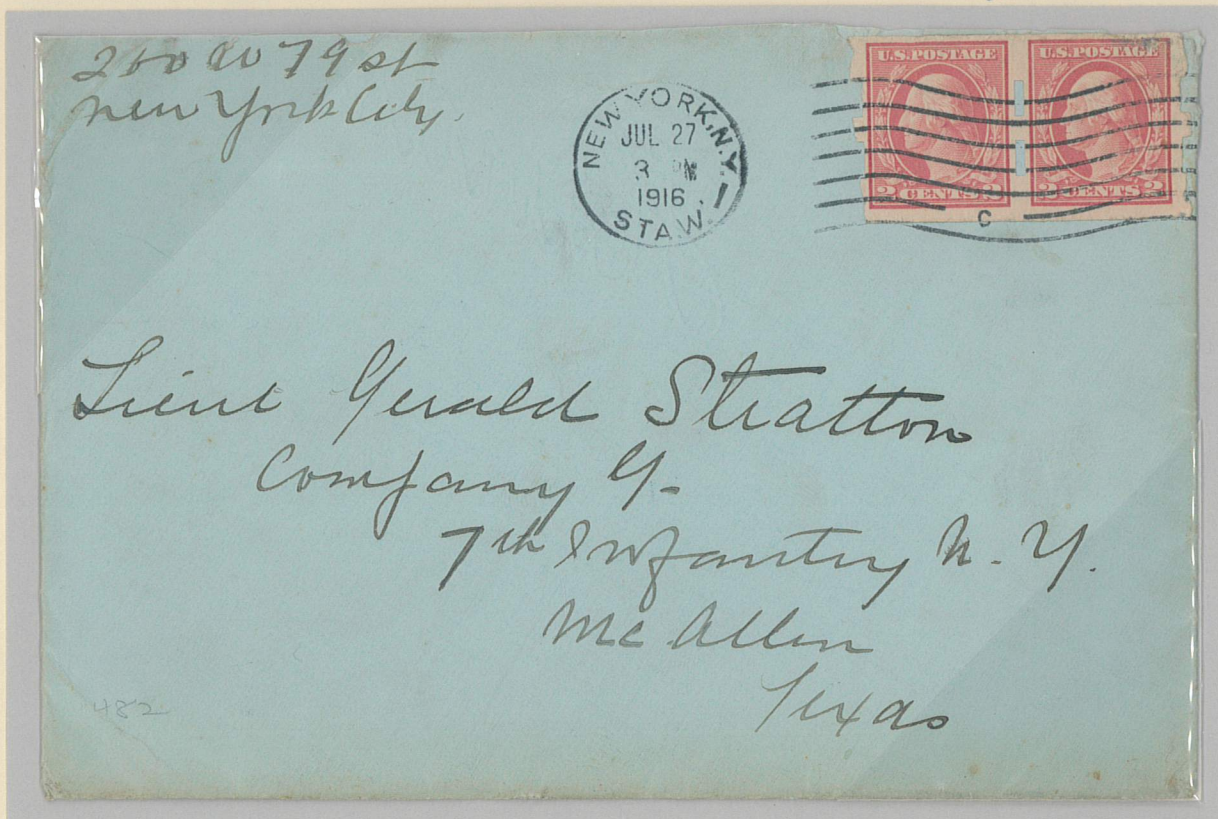 200 W 79 st
New York City.
NEW YORK, N.Y.
JUL 27
3 PM
1916
STA. W.
U.S. POSTAGE
2 CENTS 2
U.S. POSTAGE
2 CENTS 2
C
Lieut Gerald Stratton
Company G-
7th Infantry N. Y.
Mc Allen
Texas
482